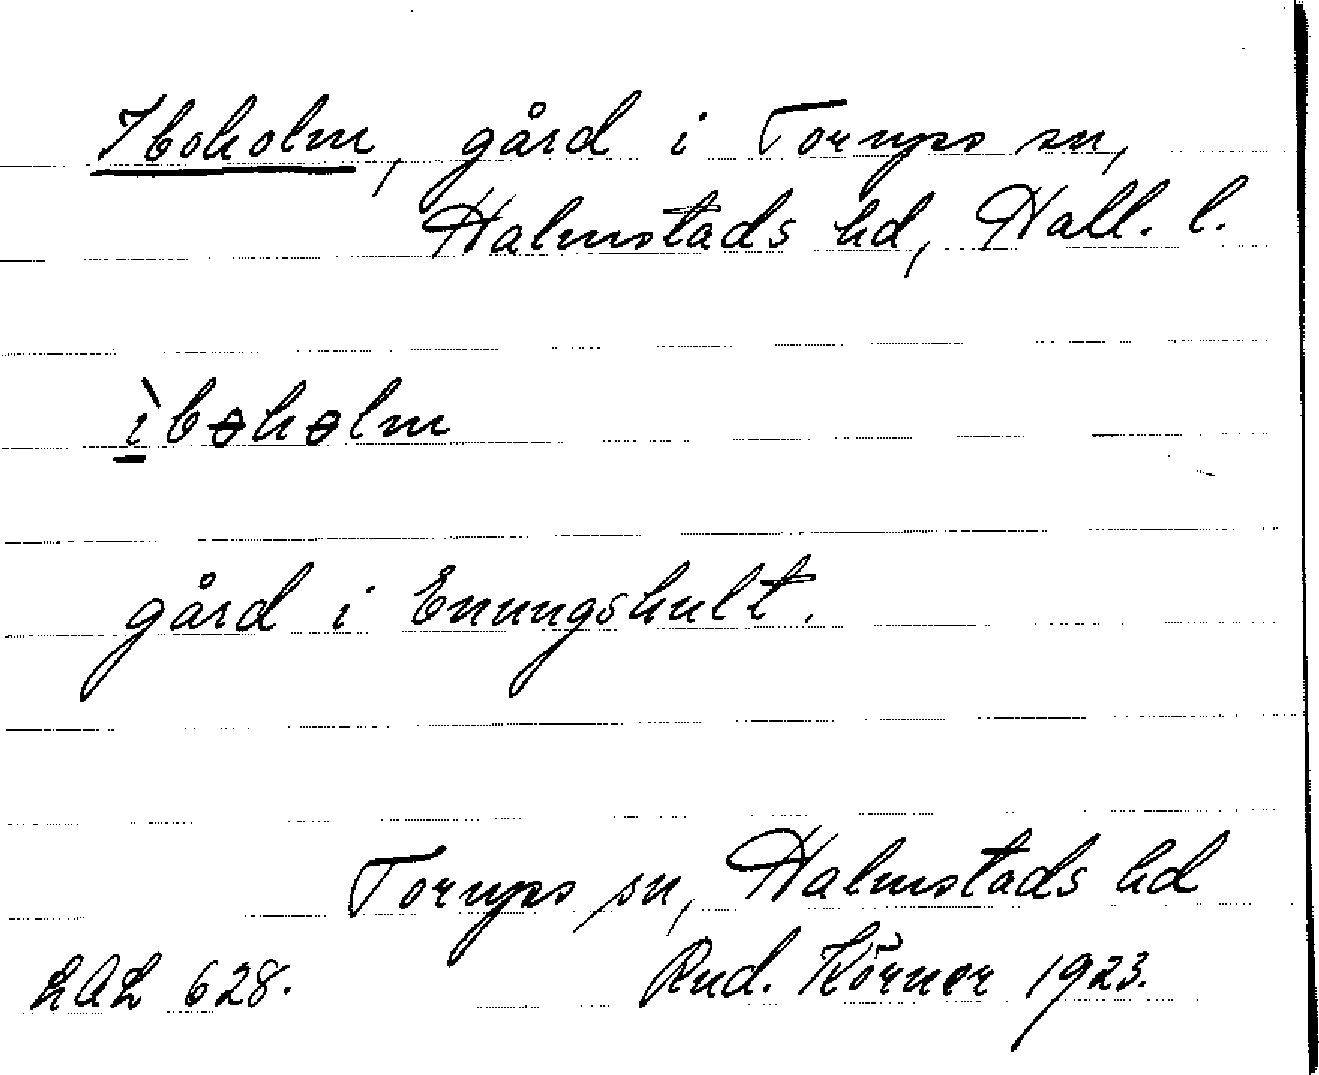 Iboholm, gård i Torups sn,
Halmstads hd, Hall. l.
ìbɵhɵlm
gård i Enungshult.
Torups sn, Halmstads hd
LAL 628. Rud. Körner 1923.